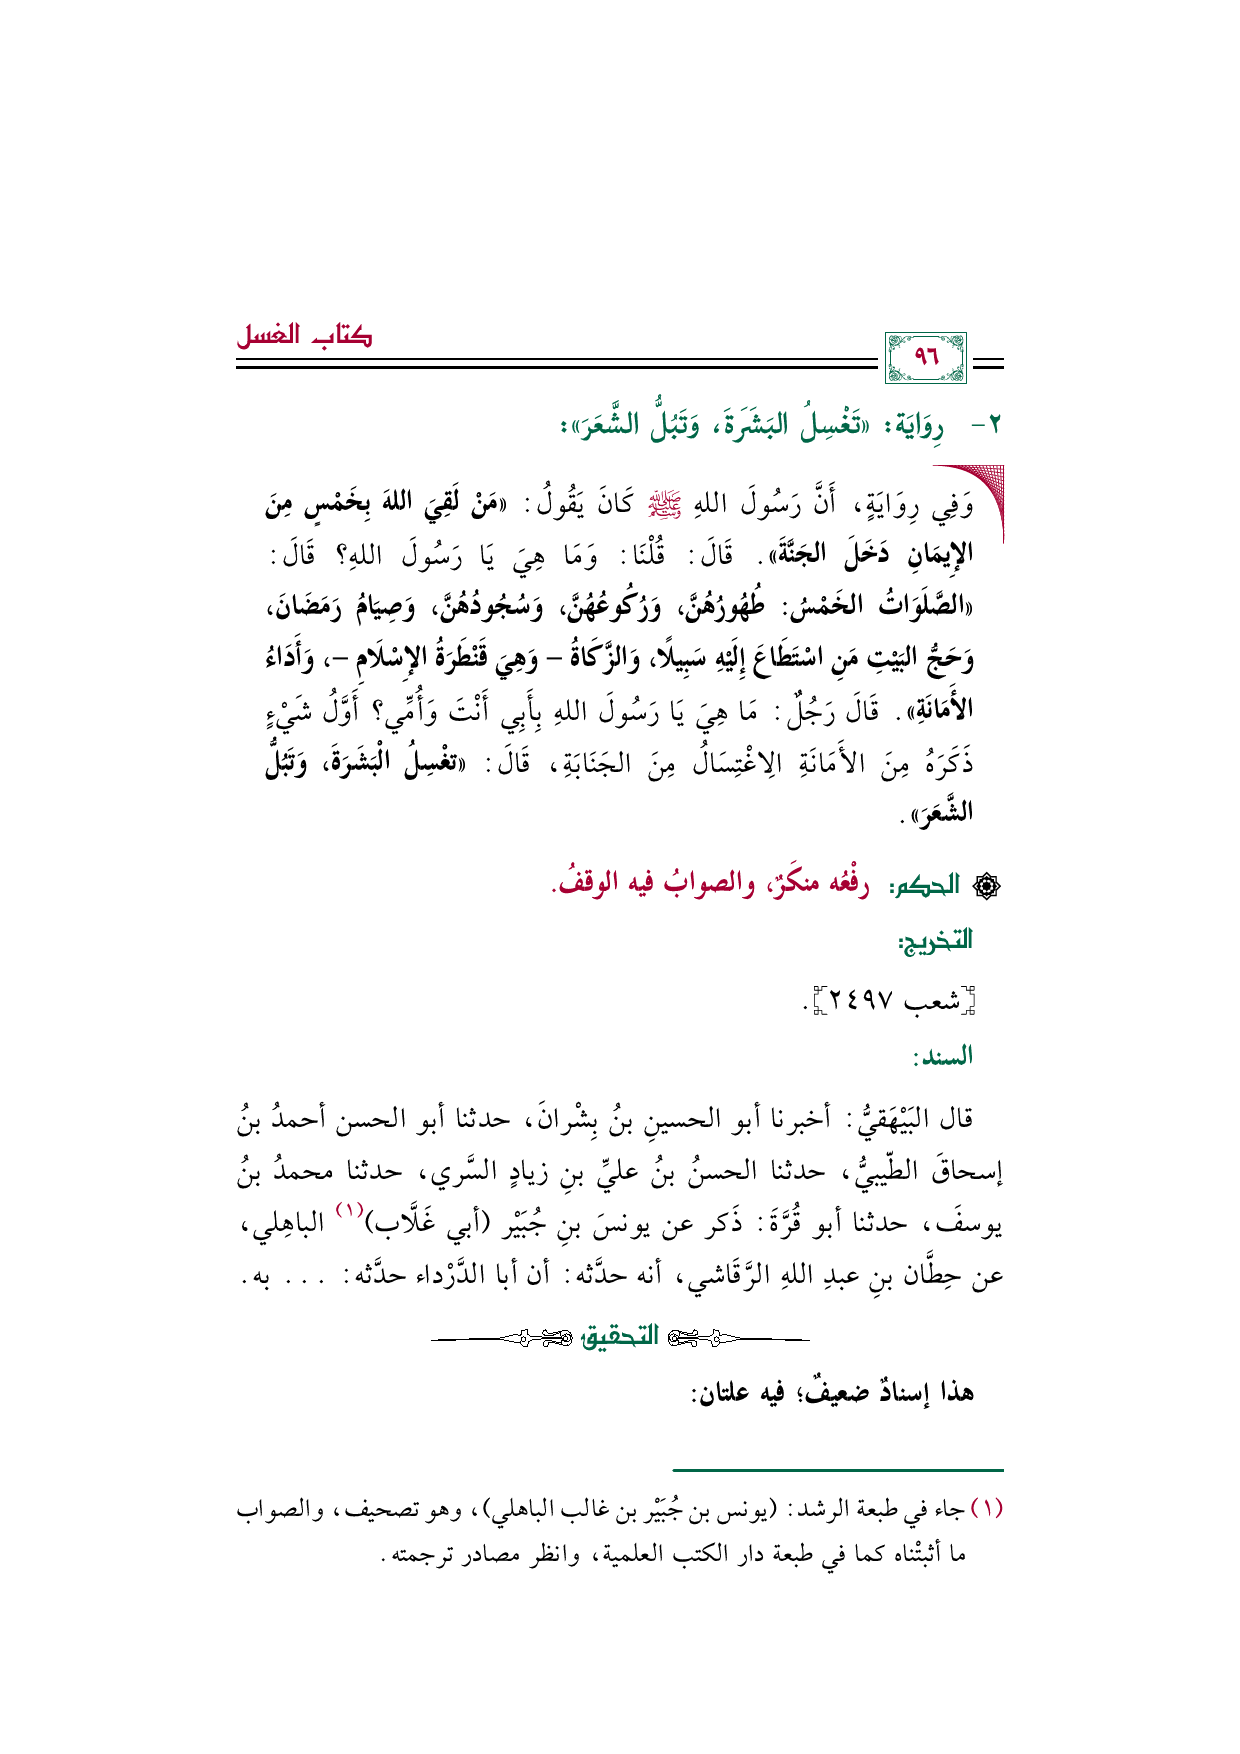 كتاب الغسل
٩٦
٢- رِوَايَة: «تَغْسِلُ البَشَرَةَ، وَتَبُلُّ الشَّعَرَ»:
وَفِي رِوَايَةٍ، أَنَّ رَسُولَ اللهِ ﷺ كَانَ يَقُولُ: «مَنْ لَقِيَ اللهَ بِخَمْسٍ مِنَ
الإِيمَانِ دَخَلَ الجَنَّةَ». قَالَ: قُلْنَا: وَمَا هِيَ يَا رَسُولَ اللهِ؟ قَالَ:
«الصَّلَوَاتُ الخَمْسُ: طُهُورُهُنَّ، وَرُكُوعُهُنَّ، وَسُجُودُهُنَّ، وَصِيَامُ رَمَضَانَ،
وَحَجُّ البَيْتِ مَنِ اسْتَطَاعَ إِلَيْهِ سَبِيلًا، وَالزَّكَاةُ – وَهِيَ قَنْطَرَةُ الإِسْلَامِ –، وَأَدَاءُ
الأَمَانَةِ». قَالَ رَجُلٌ: مَا هِيَ يَا رَسُولَ اللهِ بِأَبِي أَنْتَ وَأُمِّي؟ أَوَّلُ شَيْءٍ
ذَكَرَهُ مِنَ الأَمَانَةِ الِاغْتِسَالُ مِنَ الجَنَابَةِ، قَالَ: «تغْسِلُ الْبَشَرَةَ، وَتَبُلُّ
الشَّعَرَ».
الحكم: رفْعُه منكَرٌ، والصوابُ فيه الوقفُ.
التخريج:
[شعب ٢٤٩٧].
السند:
قال البَيْهَقيُّ: أخبرنا أبو الحسينِ بنُ بِشْرانَ، حدثنا أبو الحسن أحمدُ بنُ
إسحاقَ الطّيبيُّ، حدثنا الحسنُ بنُ عليِّ بنِ زيادٍ السَّري، حدثنا محمدُ بنُ
يوسفَ، حدثنا أبو قُرَّةَ: ذَكر عن يونسَ بنِ جُبَيْر (أبي غَلَّاب)(١) الباهِلي،
عن حِطَّان بنِ عبدِ اللهِ الرَّقَاشي، أنه حدَّثه: أن أبا الدَّرْداء حدَّثه: ... به.
التحقيق
هذا إسنادٌ ضعيفٌ؛ فيه علتان:
(١) جاء في طبعة الرشد: (يونس بن جُبَيْر بن غالب الباهلي)، وهو تصحيف، والصواب
ما أثبتْناه كما في طبعة دار الكتب العلمية، وانظر مصادر ترجمته.